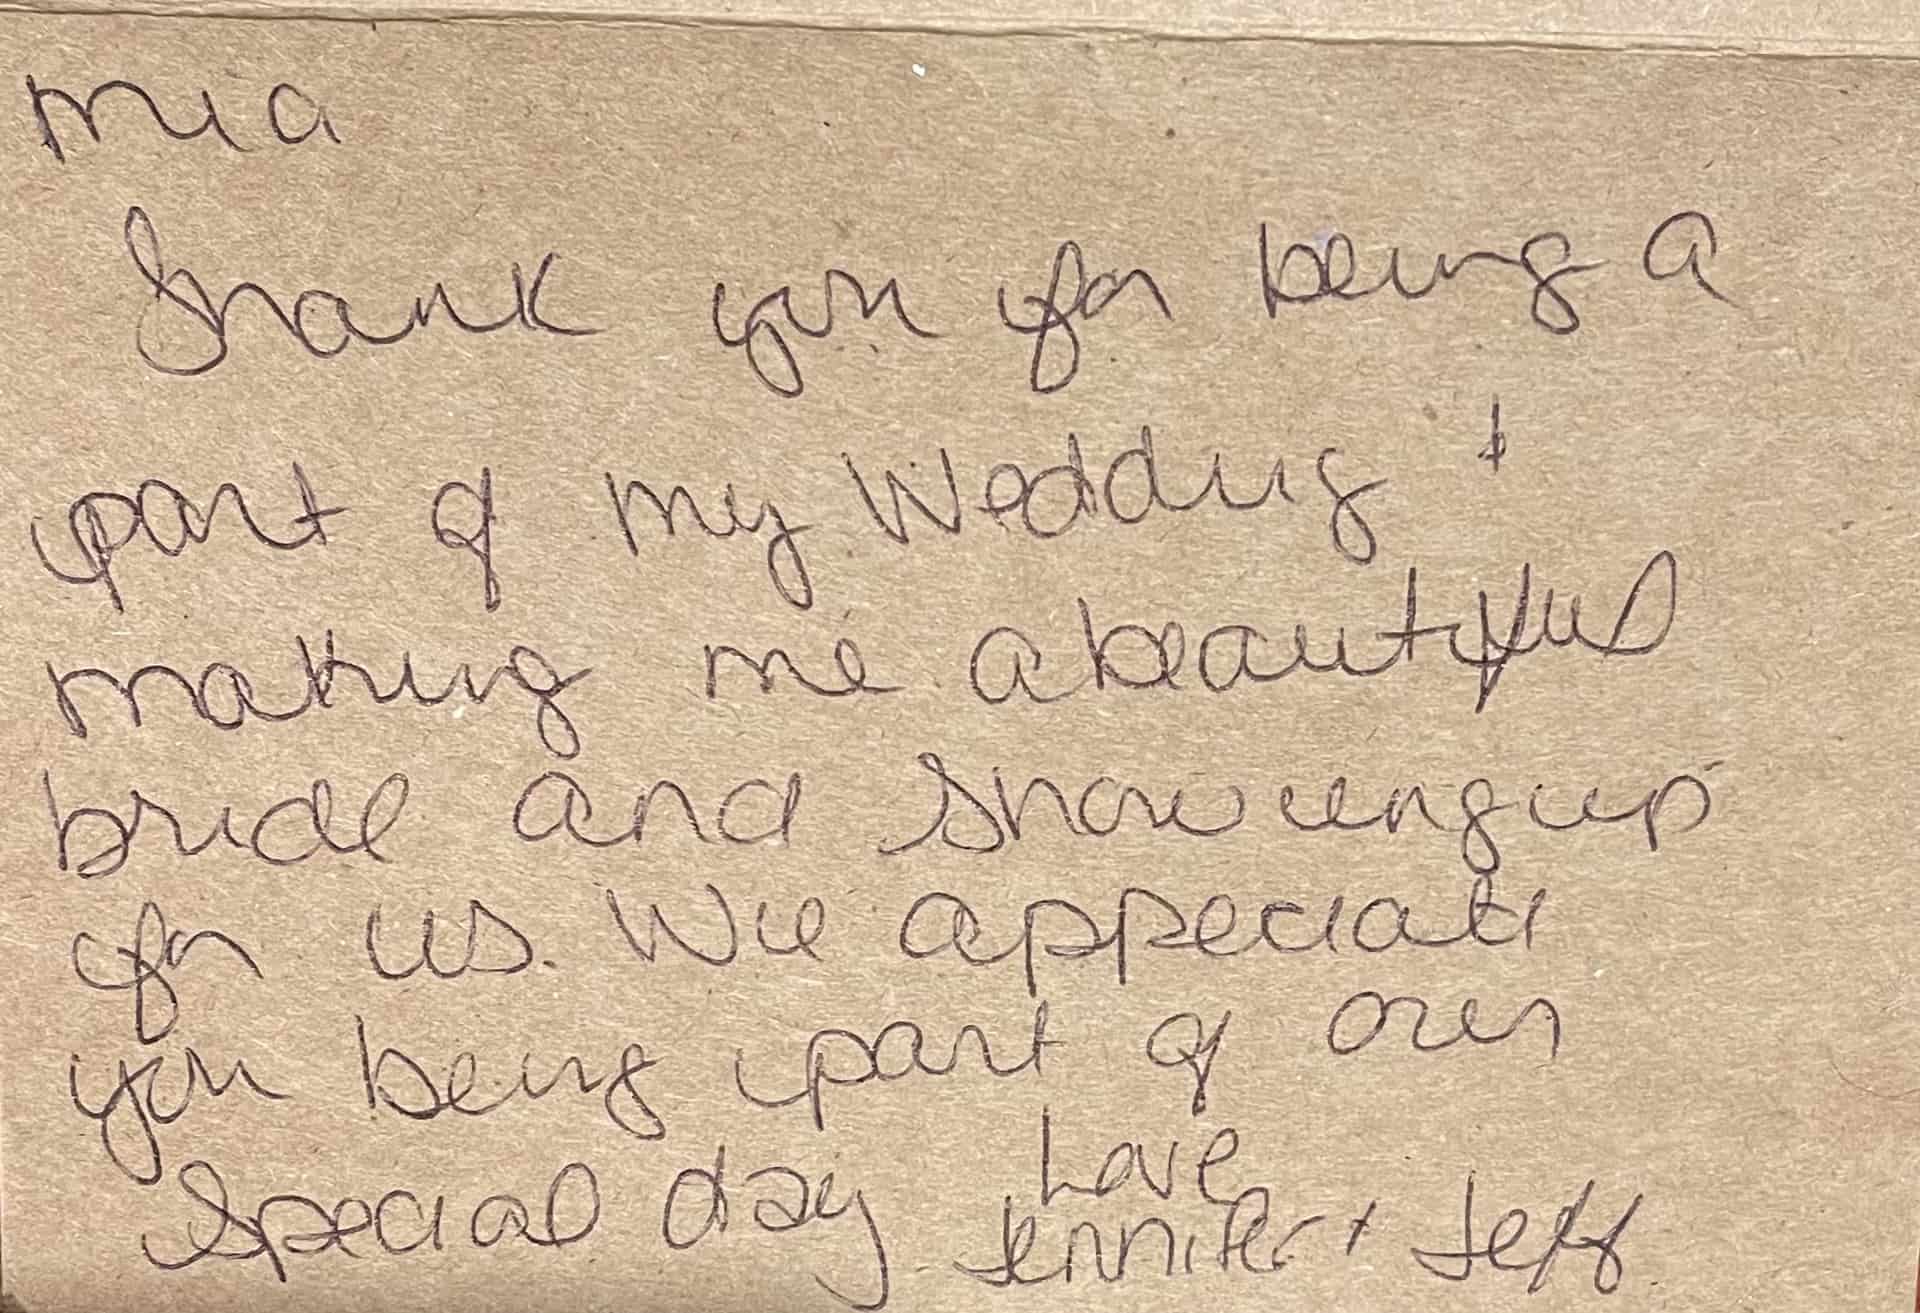 Mia
Thank you for being a
part of my Wedding +
making me a beautiful
bride and showing up
for us. We appeciate
you being part of our
special day Love
Jennifer + Jeff